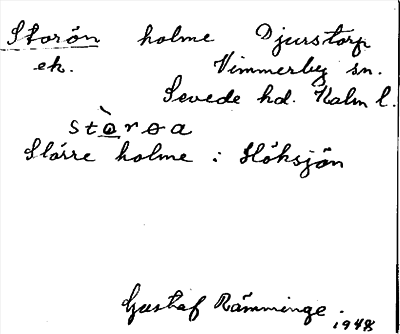 Storön holme Djurstorp
ek. Vimmerby sn.
Sevede hd. Kalm l.
stòrøa
Större holme i Höksjön
Gustaf Rämminge.
1948